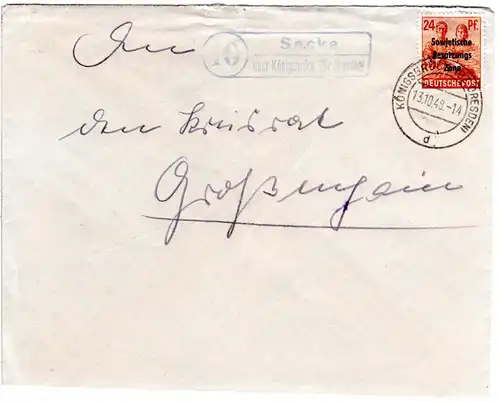 An
10
Sacka
über Königsbrück
24 Pf.
Sowjetische
Besatzungs
Zone
DEUTSCHE POST
KÖNIGSBRÜCK (BZ. DRESDEN)
13.10.48.-14
d
den Kreisrat
Großenhain